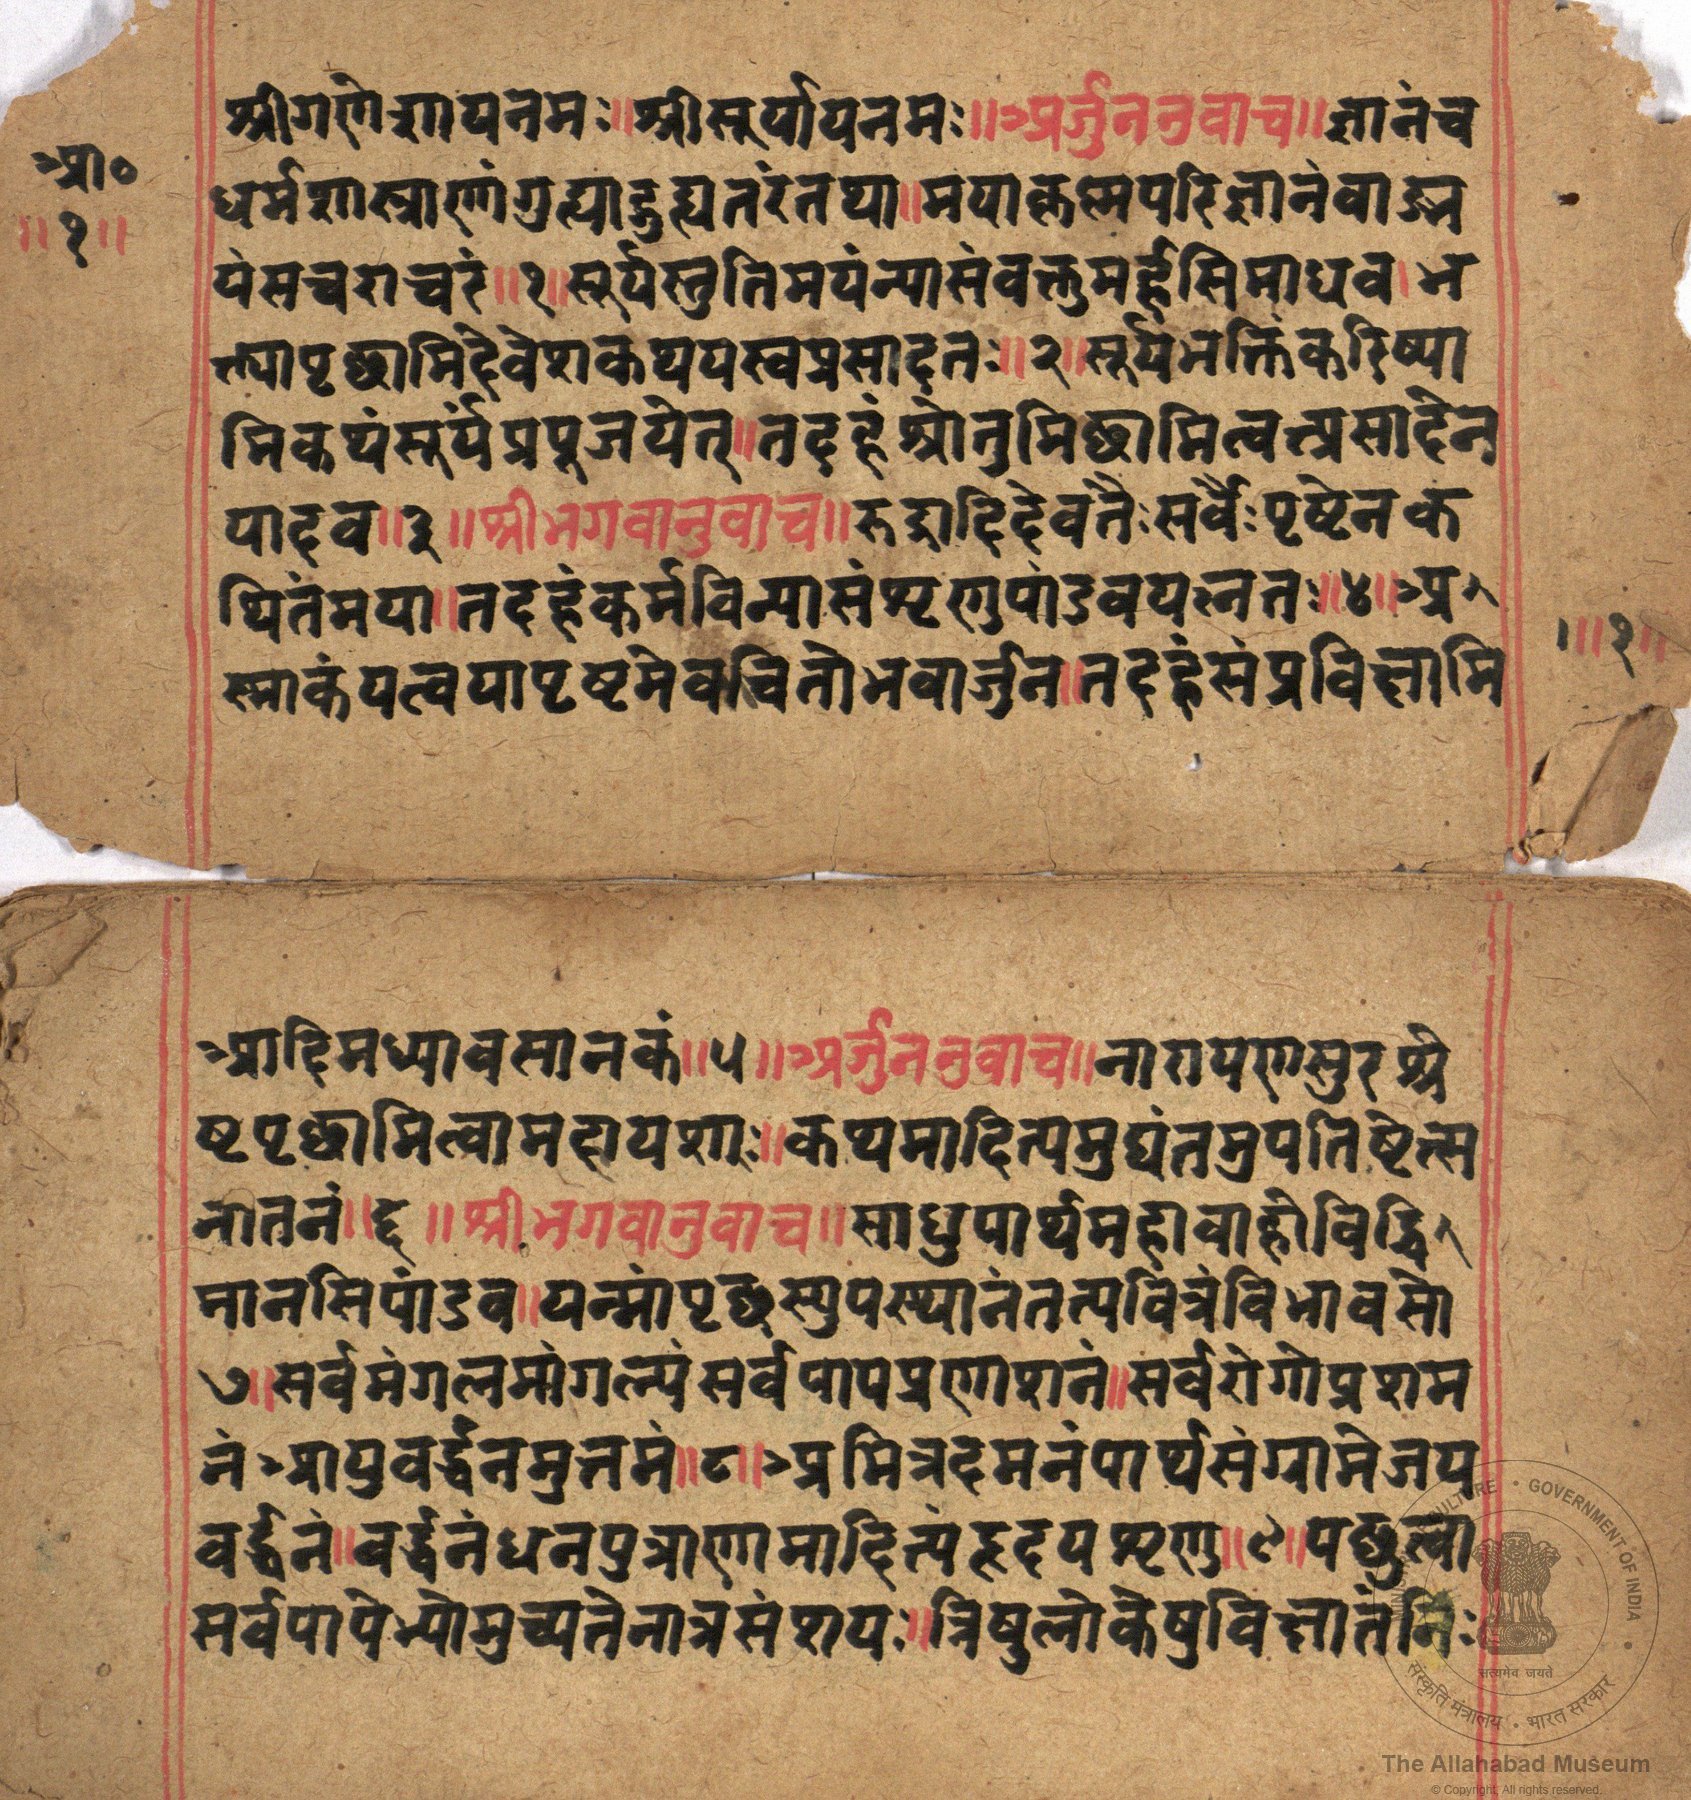 श्रीगणेशायनमः॥श्रीसूर्यायनमः॥अर्जुनउवाच॥ज्ञानंच
आ०
॥१॥
धर्मशास्त्राणंगुह्याद्गुह्यतरंतथा॥मयाकृत्स्नपरिज्ञानंवाङ्म
यंसचराचरं॥१॥सूर्यस्तुतिमयंन्यासंवक्तुमर्हसिमाधव।भ
क्त्यापृछामिदेवेशकथयस्वप्रसादतः॥२॥सूर्यभक्तिंकरिष्या
मिकथंसूर्यंप्रपूजयेत्॥तदहंश्रोतुमिछामित्वत्प्रसादेन
यादव॥३॥श्रीभगवानुवाच॥रुद्रादिदेवतैःसर्वैःपृष्टेनक
थितंमया॥तदहंकर्मविन्यासंशृणुपांडवयत्नतः॥४॥अ
॥१॥
स्माकंयत्वयापृष्टमेकचित्तोभवार्जुन॥तदहंसंप्रविक्ष्यामि
आदिमध्यावसानकं॥५॥अर्जुनउवाच॥नारायणसुरश्रे
ष्टपृछामित्वामहायशाः॥कथमादित्यमुद्यंतमुपतिष्टेत्स
नातनं॥६॥श्रीभगवानुवाच॥साधुपार्थमहाबाहोविद्धि
मानसिपांडव॥यन्मांपृछस्युपस्थानंतत्पवित्रंविभावसो
७॥सर्वमंगलमांगल्यंसर्वपापप्रणाशनं॥सर्वरोगोप्रशम
नंआयुवर्द्धनमुत्तमं॥८॥अमित्रदमनंपार्थसंग्रामेजय
वर्द्धनं॥वर्द्धनंधनपुत्राणमादित्यंहृदयशृणु॥९॥यछ्रुत्वा
सर्वपापेभ्योमुच्यतेनात्रसंशयः॥त्रिषुलोकेषुविख्यातंनिः
GOVERNMENT OF INDIA
सत्यमेव जयते
संस्कृति मंत्रालय • भारत सरकार
The Allahabad Museum
© Copyright, All rights reserved.